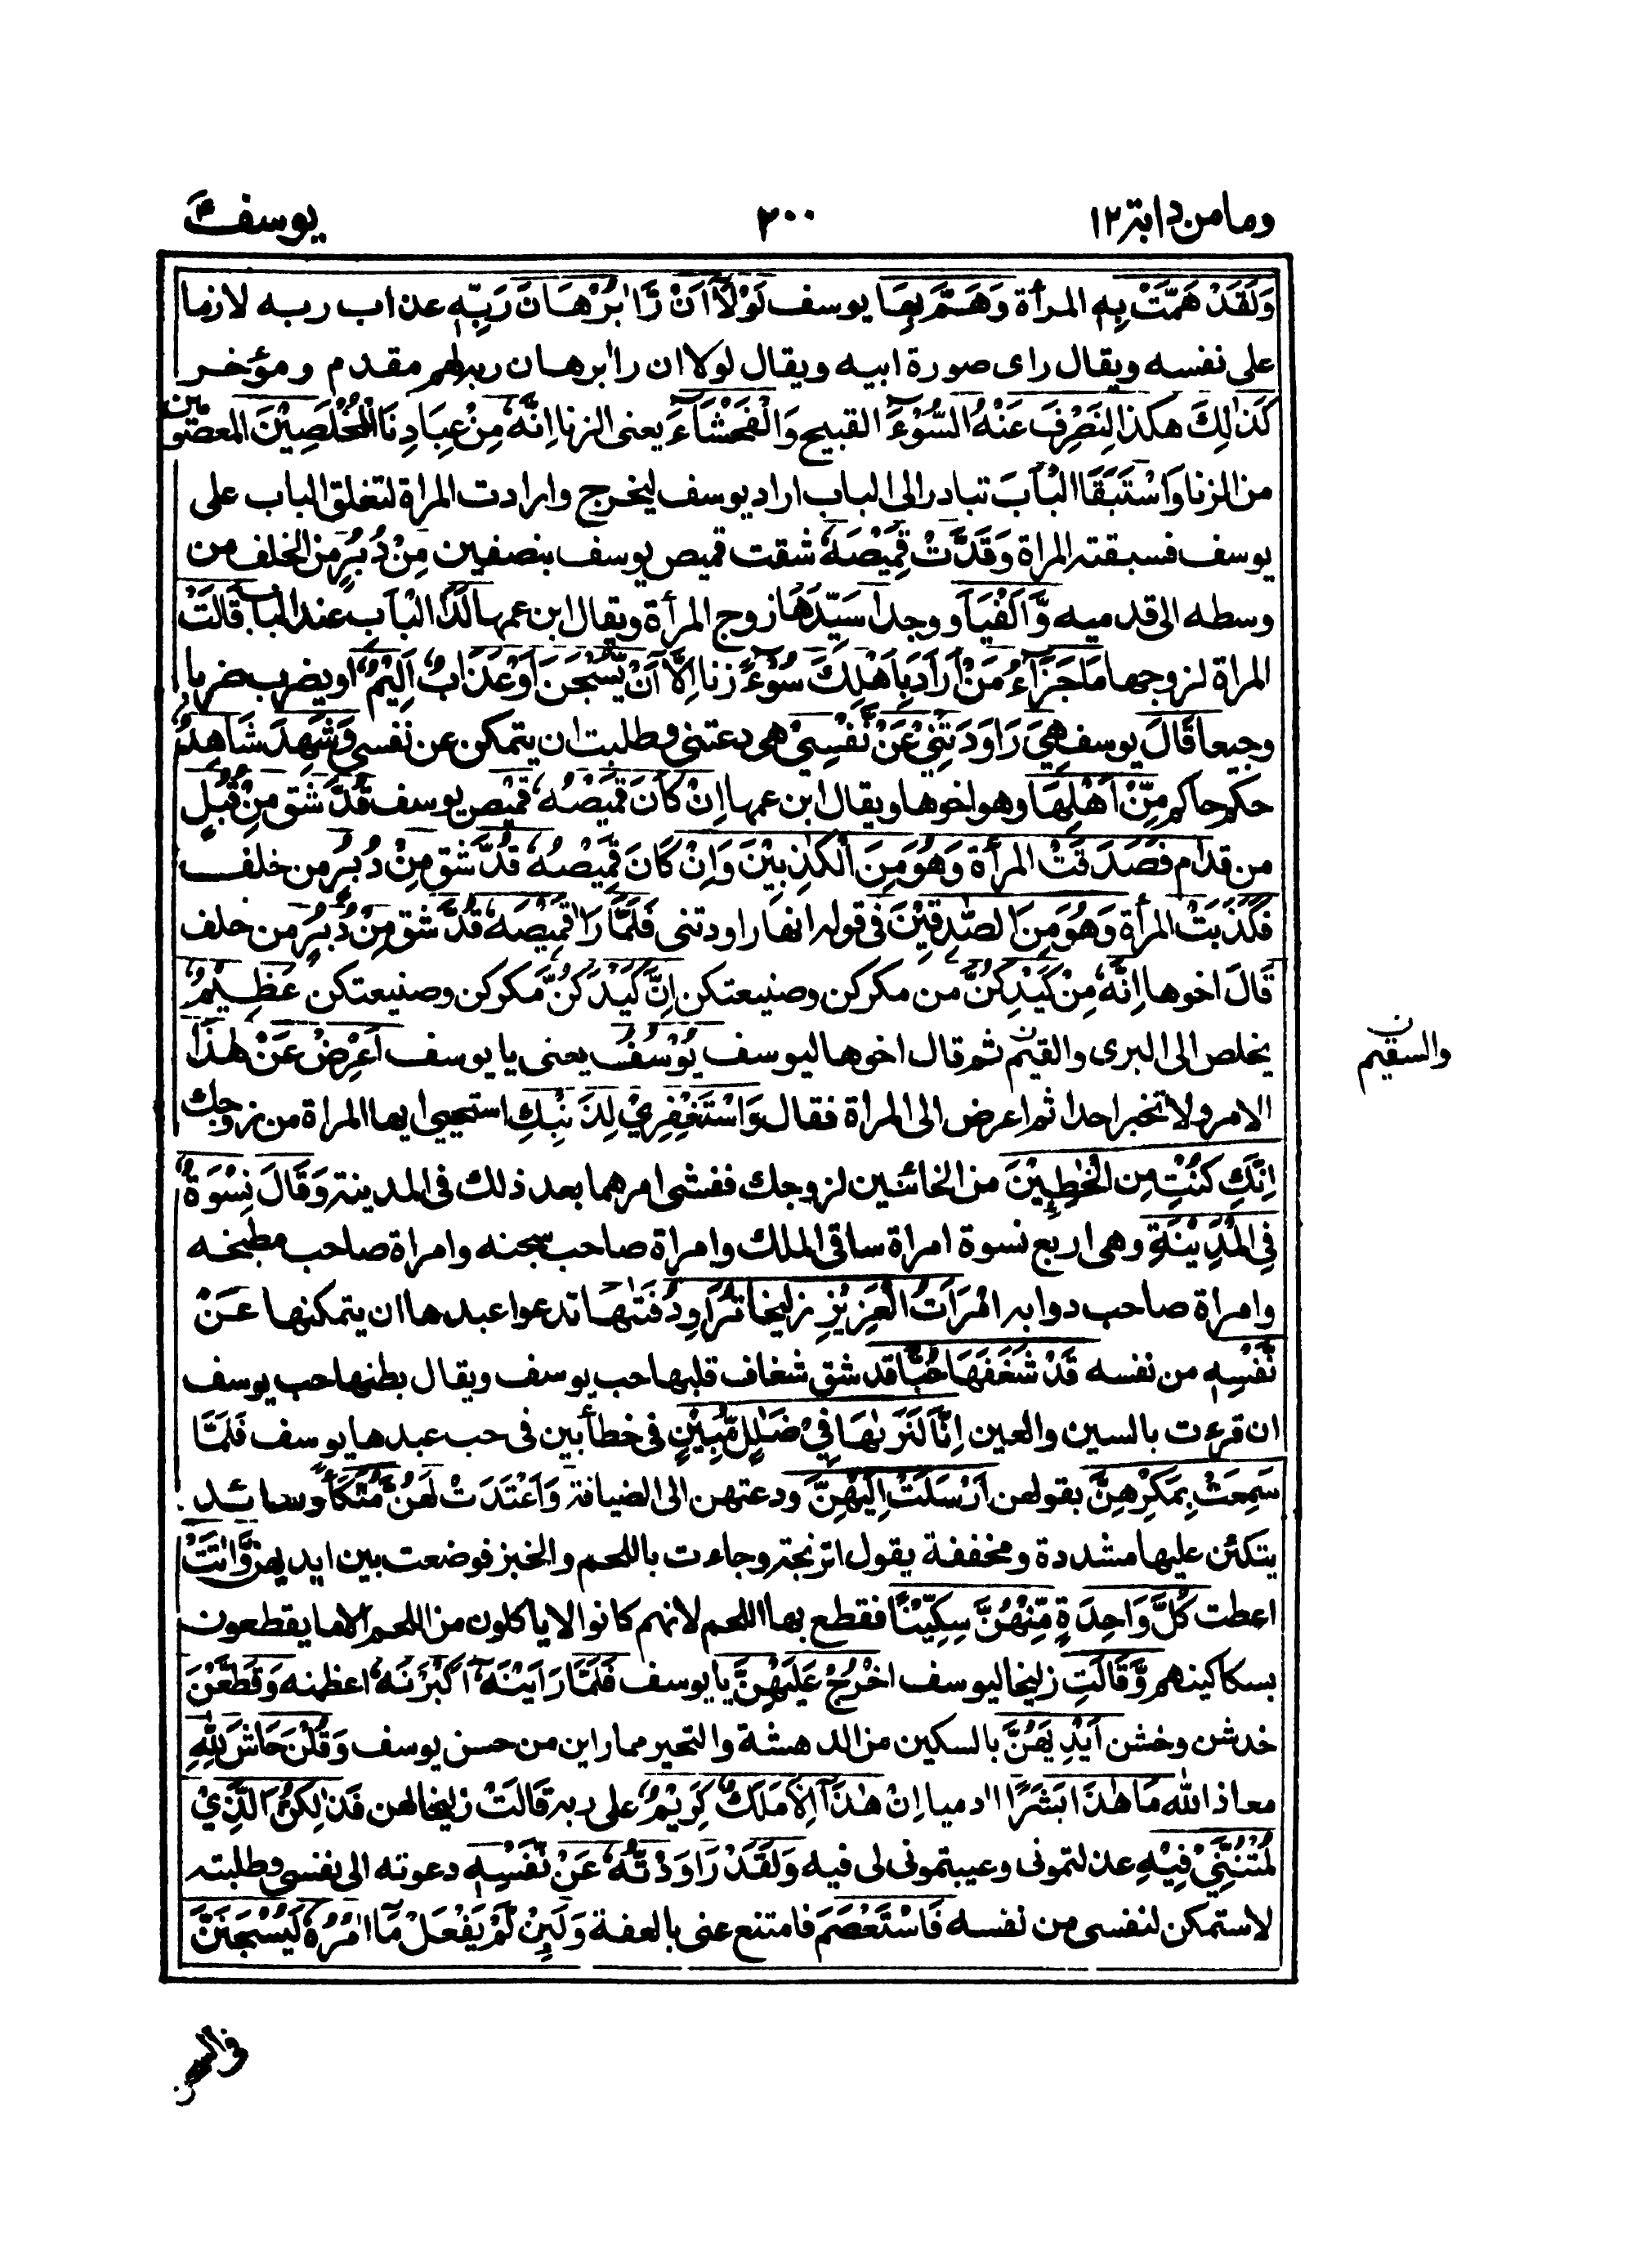 وما من دابة ١٢
٢٠٠
يوسف
وَلَقَدْ هَمَّتْ بِهٖ المرأة وَهَمَّ بِهَا يوسف لَوْلَآ اَنْ رَّاٰ بُرْهَانَ رَبِّهٖ عذاب ربه لازما
على نفسه ويقال راى صورة ابيه ويقال لولا ان را برهان ربه لهم مقدم ومؤخر
كَذٰلِكَ هكذا لِنَصْرِفَ عَنْهُ السُّوْٓءَ القبيح وَالْفَحْشَآءَ يعنى الزنا اِنَّهٗ مِنْ عِبَادِنَا الْمُخْلَصِيْنَ المعصومين
من الزنا وَاسْتَبَقَا الْبَابَ تبادرا الى الباب اراد يوسف ليخرج وارادت المراة لتغلق الباب على
يوسف فسبقته المراة وَقَدَّتْ قَمِيْصَهٗ شقت قميص يوسف بنصفين مِنْ دُبُرٍ من الخلف من
وسطه الى قدميه وَّاَلْفَيَا ووجدا سَيِّدَهَا زوج المرأة ويقال ابن عمها لَدَا الْبَابِ عند الباب قَالَتْ
المراة لزوجها مَا جَزَآءُ مَنْ اَرَادَ بِاَهْلِكَ سُوْٓءً زنا اِلَّآ اَنْ يُّسْجَنَ اَوْ عَذَابٌ اَلِيْمٌ او يضرب ضربا
وجيعا قَالَ يوسف هِيَ رَاوَدَتْنِيْ عَنْ نَّفْسِيْ هى دعتنى وطلبت ان يتمكن عن نفسى وَشَهِدَ شَاهِدٌ
حكم حاكم مِّنْ اَهْلِهَا وهو اخوها ويقال ابن عمها اِنْ كَانَ قَمِيْصُهٗ قميص يوسف قُدَّ شق مِنْ قُبُلٍ
من قدام فَصَدَقَتْ المرأة وَهُوَ مِنَ الْكٰذِبِيْنَ وَاِنْ كَانَ قَمِيْصُهٗ قُدَّ شق مِنْ دُبُرٍ من خلف
فَكَذَبَتْ المرأة وَهُوَ مِنَ الصّٰدِقِيْنَ فى قوله انها راودتنى فَلَمَّا رَاٰ قَمِيْصَهٗ قُدَّ شق مِنْ دُبُرٍ من خلف
قَالَ اخوها اِنَّهٗ مِنْ كَيْدِكُنَّ من مكركن وصنيعتكن اِنَّ كَيْدَكُنَّ مكركن وصنيعتكن عَظِيْمٌ
يخلص الى البرى والقيم ثم قال اخوها ليوسف يُوْسُفُ يعنى يا يوسف اَعْرِضْ عَنْ هٰذَا
والسقيم ن
الامر ولا تخبر احدا ثم اعرض الى المراة فقال وَاسْتَغْفِرِيْ لِذَنْبِكِ استحيى ايها المراة من زوجك
اِنَّكِ كُنْتِ مِنَ الْخٰطِـِٕيْنَ من الخائنين لزوجك ففشى امرهما بعد ذلك فى المدينة وَقَالَ نِسْوَةٌ
فِي الْمَدِيْنَةِ وهى اربع نسوة امراة ساقى الملك وامراة صاحب سجنه وامراة صاحب مطبخه
وامراة صاحب دوابه امْرَاَتُ الْعَزِيْزِ زليخا تُرَاوِدُ فَتٰىهَا تدعوا عبدها ان يتمكنها عَنْ
نَّفْسِهٖ من نفسه قَدْ شَغَفَهَا حُبًّا قد شق شغاف قلبها حب يوسف ويقال بطنها حب يوسف
ان قرءت بالسين والعين اِنَّا لَنَرٰىهَا فِيْ ضَلٰلٍ مُّبِيْنٍ فى خطأ بين فى حب عبدها يوسف فَلَمَّا
سَمِعَتْ بِمَكْرِهِنَّ بقولهن اَرْسَلَتْ اِلَيْهِنَّ ودعتهن الى الضيافة وَاَعْتَدَتْ لَهُنَّ مُتَّكَاً وسائد
يتكئن عليها مشددة ومخففة يقول اترنجة وجاءت باللحم والخبز فوضعت بين ايديهن وَّاٰتَتْ
اعطت كُلَّ وَاحِدَةٍ مِّنْهُنَّ سِكِّيْنًا فقطع بها اللحم لانهم كانوا لا ياكلون من اللحم الا ما يقطعون
بسكاكينهم وَّقَالَتِ زليخا ليوسف اخْرُجْ عَلَيْهِنَّ يا يوسف فَلَمَّا رَاَيْنَهٗٓ اَكْبَرْنَهٗ اعظمنه وَقَطَّعْنَ
خدشن وخشن اَيْدِيَهُنَّ بالسكين من الدهشة والتحير مما راين من حسن يوسف وَقُلْنَ حَاشَ لِلّٰهِ
معاذ الله مَا هٰذَا بَشَرًا ادميا اِنْ هٰذَآ اِلَّا مَلَكٌ كَرِيْمٌ على ربه قَالَتْ زليخا لهن فَذٰلِكُنَّ الَّذِيْ
لُمْتُنَّنِيْ فِيْهِ عذلتمونى وعيبتمونى لى فيه وَلَقَدْ رَاوَدْتُّهٗ عَنْ نَّفْسِهٖ دعوته الى نفسى وطلبته
لاستمكن لنفسى من نفسه فَاسْتَعْصَمَ فامتنع عنى بالعفة وَلَىِٕنْ لَّمْ يَفْعَلْ مَآ اٰمُرُهٗ لَيُسْجَنَنَّ
فى السجن